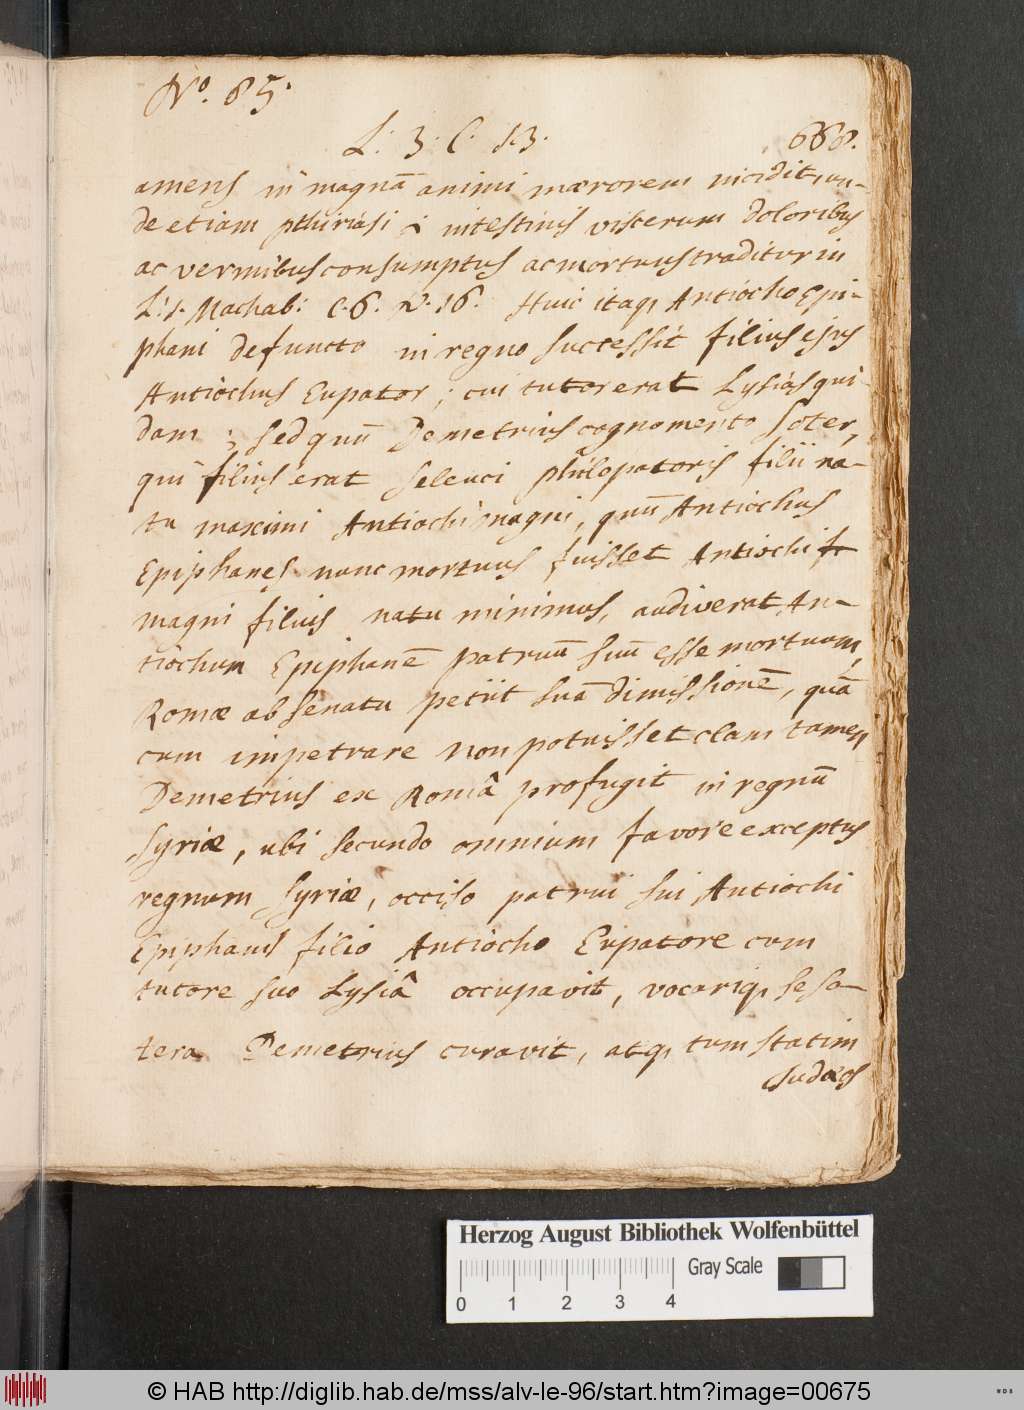 No. 85.
L: 3: C. 13.
668.
amens in magnā animi mærorem incidit, un-
de etiam pthiriasi & intestinis viscerum doloribus
ac vermibus consumptus ac mortuus traditur in
L: 1. Machab: C. 6. N. 16. Huic itaq, Antiocho Epi-
phani defuncto in regno successit filius ejus
Antiochus Eupator; cui tutor erat Lysias qui-
dam; sed quū Demetrius cognomento Soter,
qui filius erat Seleuci philopatoris filii na-
tu maximi Antiochi magni, quū Antiochus
Epiphanes nunc mortuus fuisset Antiochi
magni filius natu minimus, audiverat, An-
tiochum Epiphanē patruū suū esse mortuum,
Romæ ab Senatu petiit suā dimissionē, quā
cum impetrare non potuisset clam tamen
Demetrius ex Româ profugit in regnū
Syriæ, ubi secundo omnium favore exceptus
regnum Syriæ, occiso patrui sui Antiochi
Epiphanis filio Antiocho Eupatore cum
tutore suo Lysiâ occupavit, vocariq, se so-
tera Demetrius curavit, atq, tum statim
Judæos
Herzog August Bibliothek Wolfenbüttel
Gray Scale
0 1 2 3 4
© HAB http://diglib.hab.de/mss/alv-le-96/start.htm?image=00675